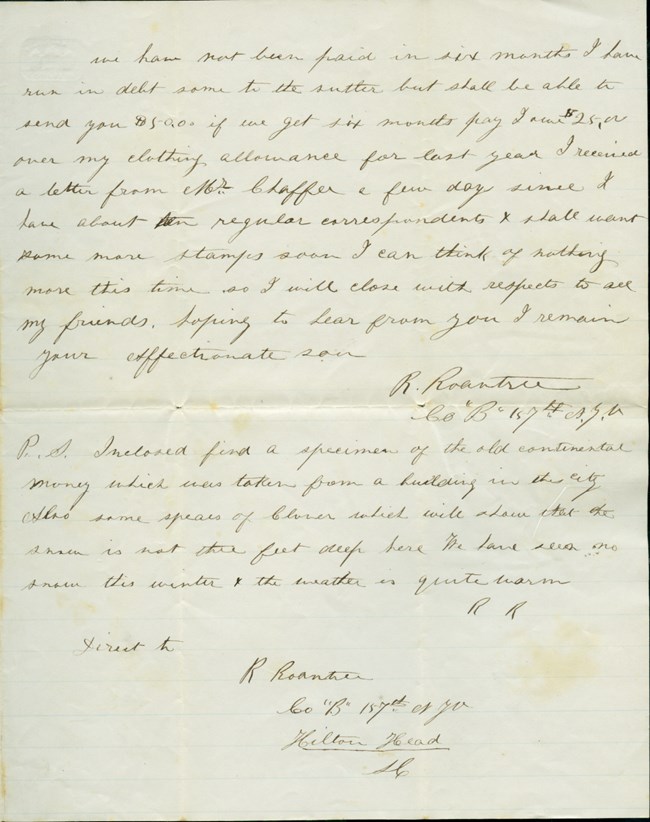 we have not been paid in six months I have
run in debt some to the sutter but shall be able to
send you $50.00 if we get six months pay I owe $25, or
over my clothing allowance for last year I received
a letter from Mr. Chaffee a few day since I
have about ten regular correspondents & shall want
some more stamps soon I can think of nothing
more this time so I will close with respects to all
my friends. hoping to hear from you I remain
your affectionate son
R. Roantree
Co "B" 157th N.Y.V
P. S. Inclosed find a specimen of the old continental
money which was taken from a building in the city
Also some spears of Clover which will show that the
snow is not thre feet deep here We have seen no
snow this winter & the weather is quite warm
R R
Direct to
R Roantree
Co "B" 157th N Y V
Hilton Head
SC